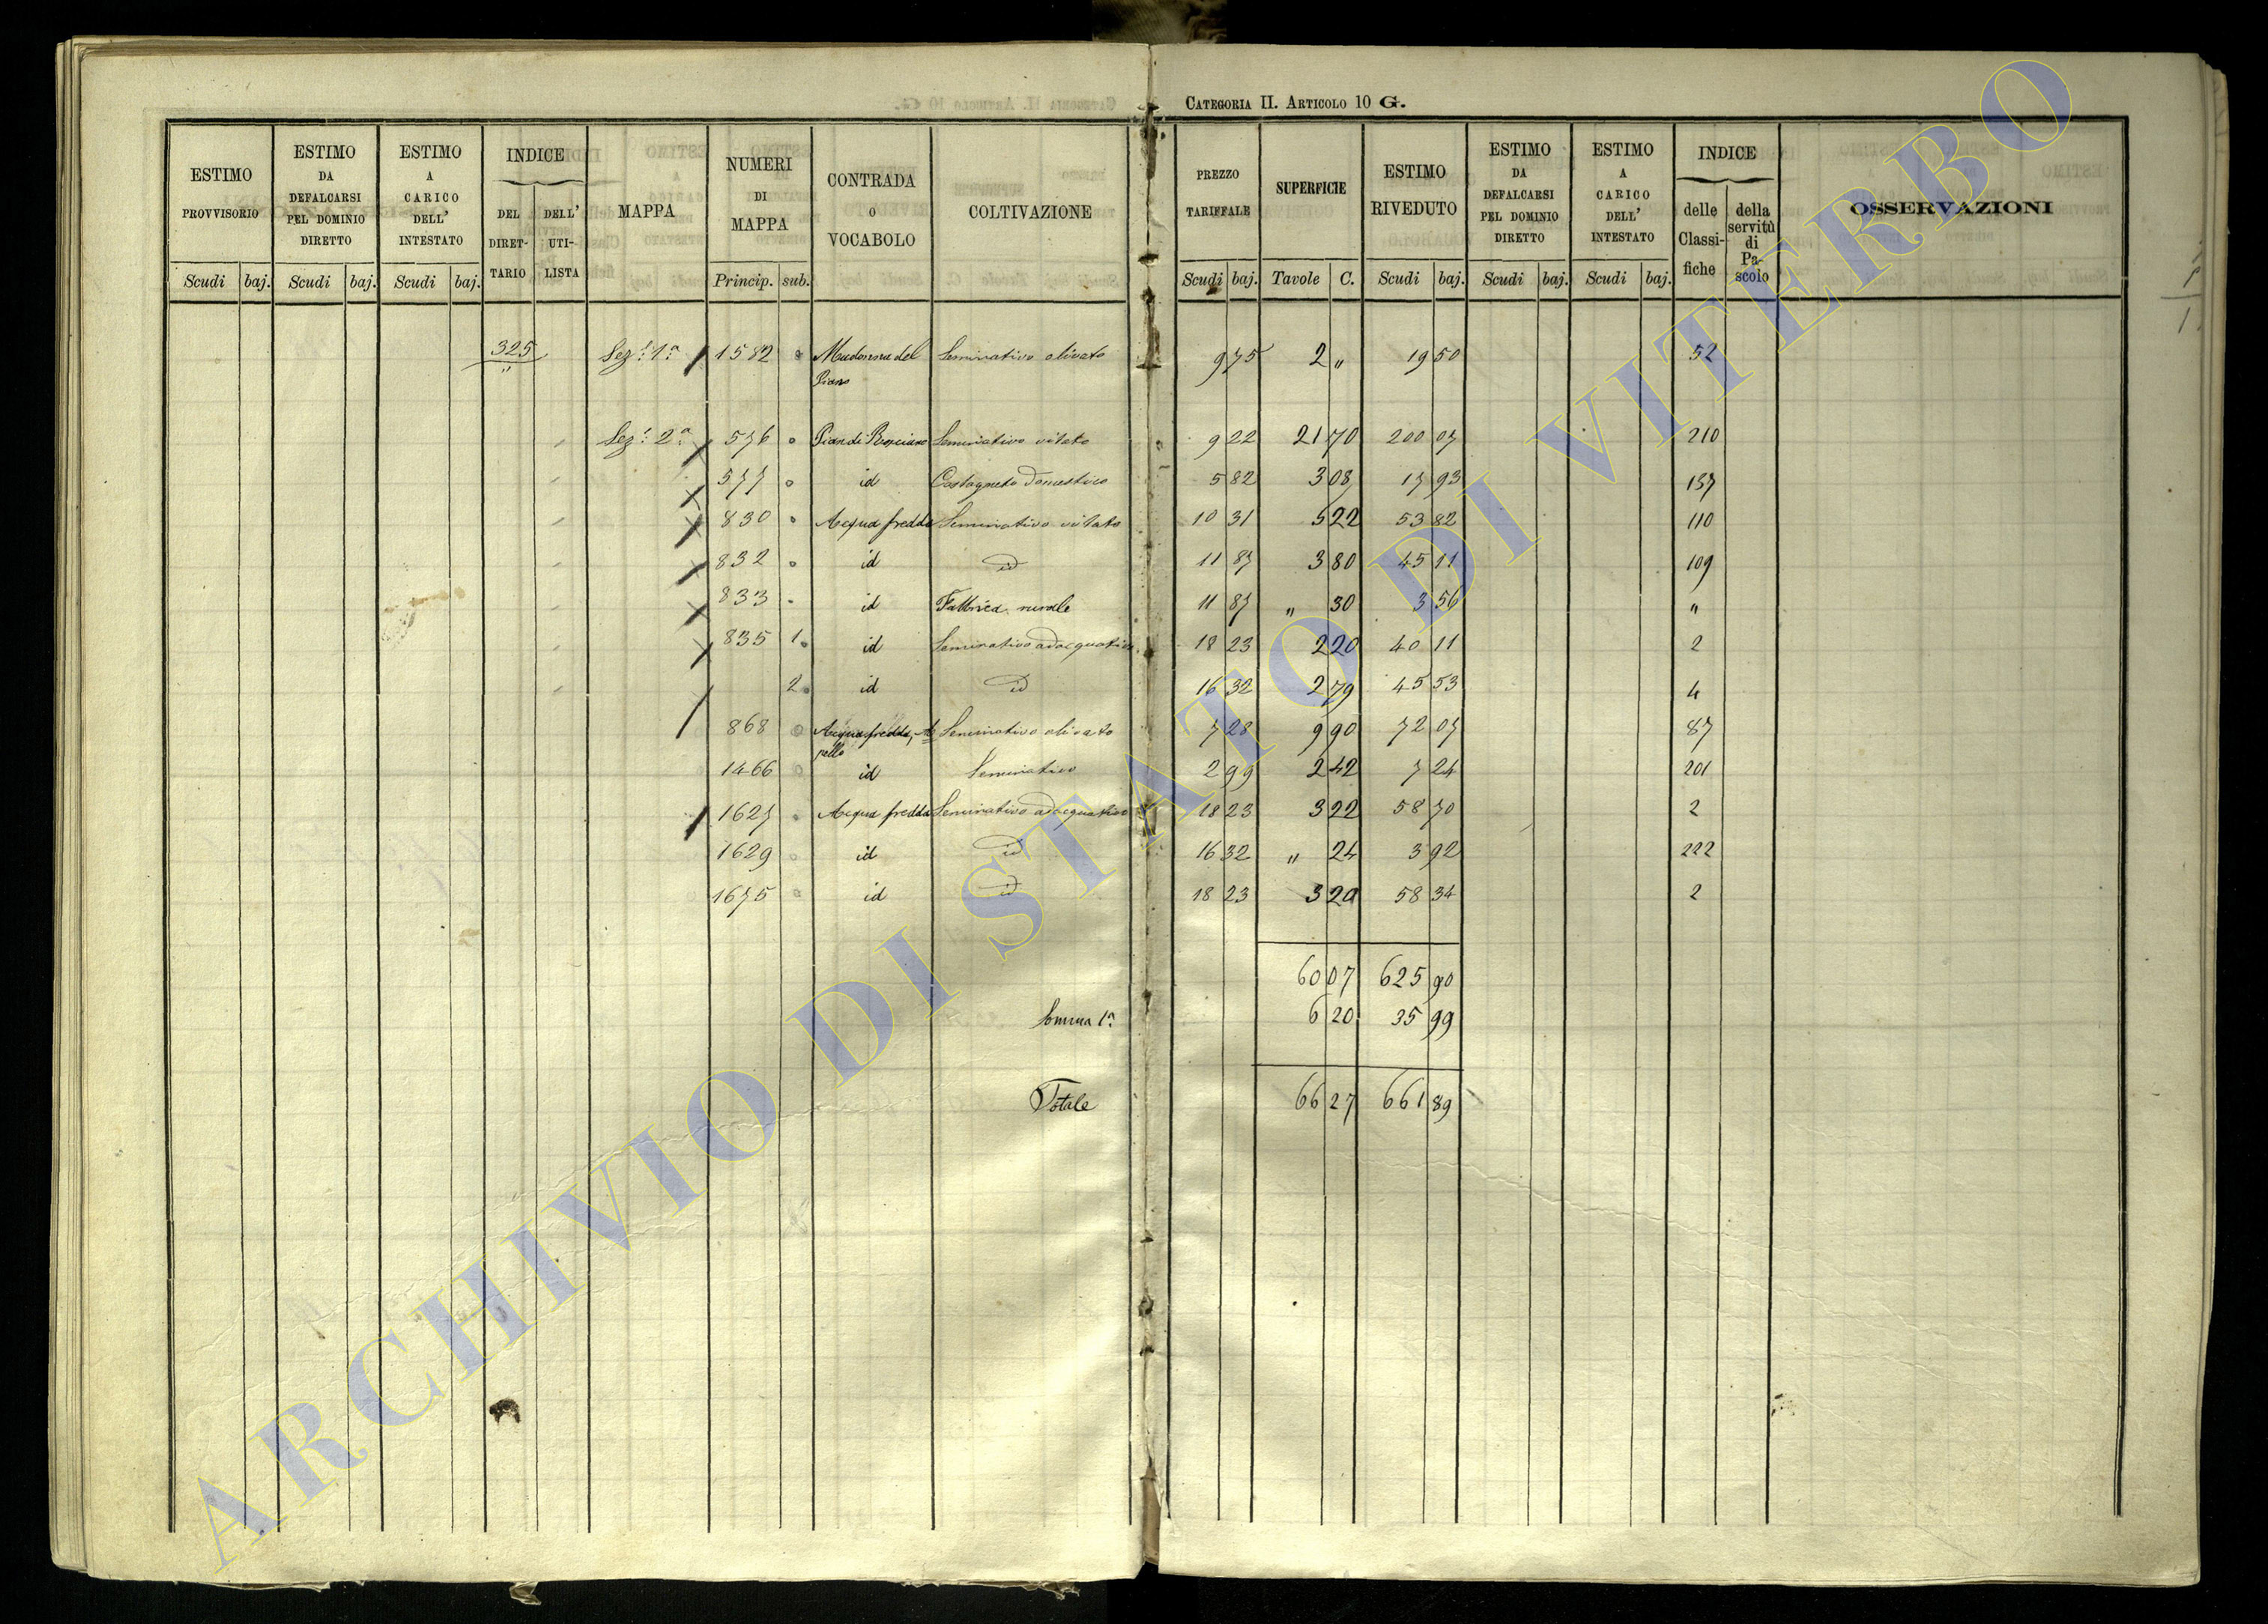 CATEGORIA II. ARTICOLO 10 G.
ESTIMO PROVVISORIO
Scudi baj.
ESTIMO DA DEFALCARSI PEL DOMINIO DIRETTO
Scudi baj.
ESTIMO A CARICO DELL' INTESTATO
Scudi baj.
INDICE
DEL DIRET-TARIO
DELL' UTI-LISTA
MAPPA
NUMERI DI MAPPA
Princip. sub.
CONTRADA O VOCABOLO
COLTIVAZIONE
PREZZO TARIFFALE
Scudi baj.
SUPERFICIE
Tavole C.
ESTIMO RIVEDUTO
Scudi baj.
ESTIMO DA DEFALCARSI PEL DOMINIO DIRETTO
Scudi baj.
ESTIMO A CARICO DELL' INTESTATO
Scudi baj.
INDICE
delle Classi-fiche
della servitù di Pa-scolo
OSSERVAZIONI
325 Sez: 1a 1582 Madonna del Piano Seminativo olivato 9 75 2 " 19 50 52
Sez: 2a 576 Pian di Seminativo vitato 9 22 21 70 200 07 210
577 id Castagneto domestico 5 82 3 08 17 93 137
830 Acqua fredda Seminativo vitato 10 31 5 22 53 82 110
832 id id 11 87 3 80 45 11 109
833 id Fabbrica rurale 11 87 " 30 3 56 "
835 1 id Seminativo adacquativo 18 23 2 20 40 11 2
2 id id 16 32 2 79 45 53 4
868 Acqua fredda, Seminativo olivato 7 28 9 90 72 07 87
1466 id Seminativo 2 99 2 42 7 24 201
1627 Acqua fredda Seminativo adacquativo 18 23 3 22 58 70 2
1629 id id 16 32 " 24 3 92 222
1675 id id 18 23 3 20 58 34 2
60 07 625 90
Somma 1a 6 20 35 99
Totale 66 27 661 89
ARCHIVIO DI STATO DI VITERBO